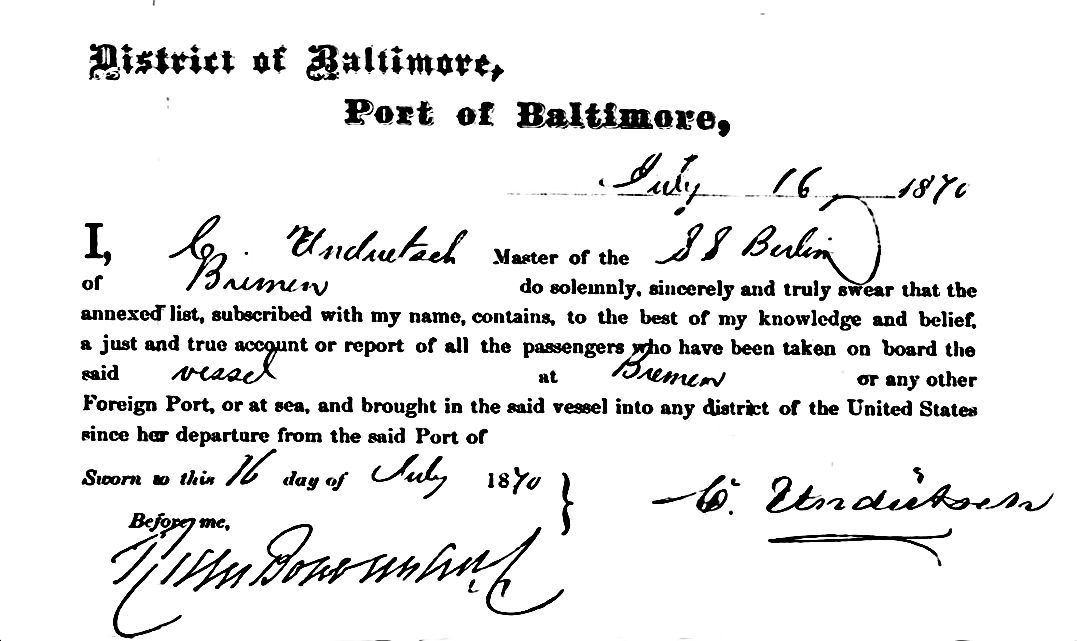 District of Baltimore,
Port of Baltimore,
July 16 1870
I, C. Undutsch Master of the SS Berlin
of Bremen do solemnly, sincerely and truly swear that the
annexed list, subscribed with my name, contains, to the best of my knowledge and belief,
a just and true account or report of all the passengers who have been taken on board the
said vessel at Bremen or any other
Foreign Port, or at sea, and brought in the said vessel into any district of the United States
since her departure from the said Port of
Sworn to this 16 day of July 1870
C. Undutsch
Before me,